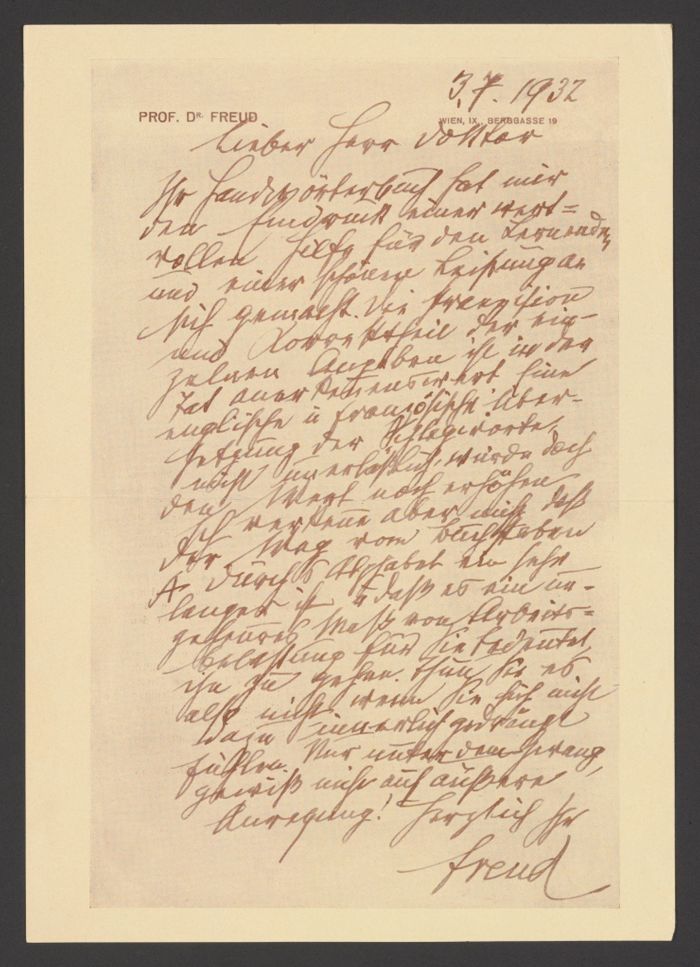 3.7.1932
PROF. DR. FREUD
WIEN, IX., BERGGASSE 19
Lieber Herr Doktor
Ihr Handwörterbuch hat mir
den Eindruck einer wert=
vollen Hilfe für den Lernenden
und einer schönen Leistung an
sich gemacht. Die Präzision
und Korrektheit der ein-
zelnen Angaben ist in der
Tat anerkennenswert. Eine
englische u französische Über-
setzung der Schlagworte,
nicht unerläßlich, würde doch
den Wert noch erhöhen
Ich verkenne aber nicht, daß
der Weg vom Buchstaben
A durchs Alphabet ein sehr
langer ist u daß es ein un-
geheures Maß von Arbeits=
belastung für Sie bedeutet,
ihn zu gehen. Thun Sie es
also nicht, wenn Sie sich nicht
dazu innerlich gedrängt
fühlen. Nur unter dem Zwang,
gewiß nicht auf äußere
Anregung! Herzlich Ihr
Freud